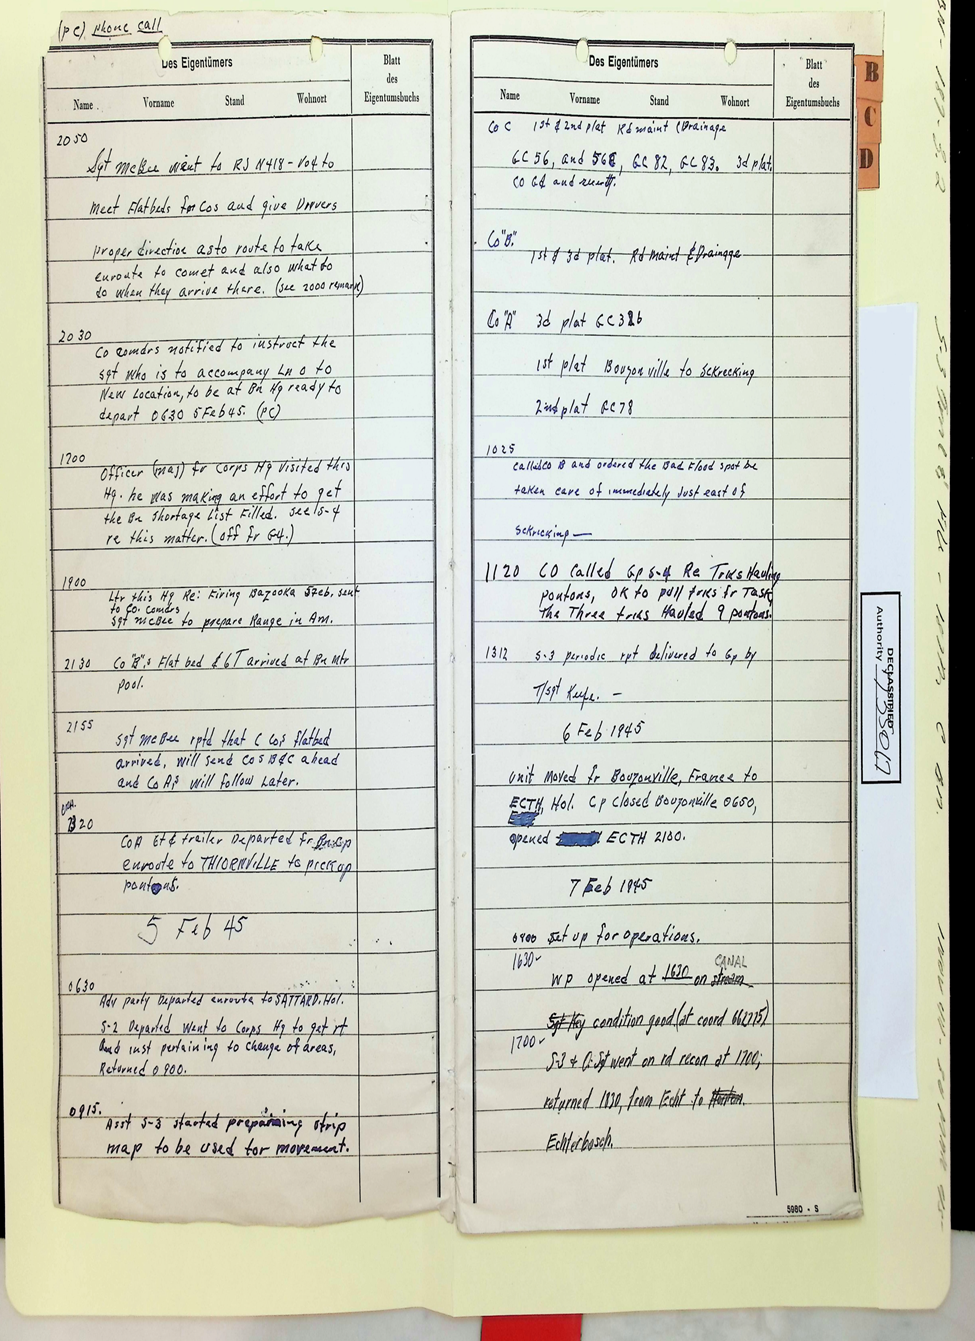 (PC) phone call
Des Eigentümers
Blatt
des
Eigentumsbuchs
Name Vorname Stand Wohnort
2050
Sgt McBee went to RJ N418-V04 to
meet Flatbeds fm Cos and give Drivers
proper direction as to route to take
enroute to comet and also what to
do when they arrive there. (see 2000 remark)
2030
Co comdrs notified to instruct the
sgt who is to accompany Ln O to
New Location, to be at Bn Hq ready to
depart 0630 5 Feb 45. (PC)
1700
Officer (maj) fr Corps Hq visited this
Hq. he was making an effort to get
the Bn Shortage List Filled. see S-4
re this matter. (off fr G4.)
1900
Ltr this Hq Re: Firing Bazooka 5 Feb. sent
to Co. Comdrs
Sgt McBee to prepare Range in Am.
2130 Co "B"s Flat bed & 6T arrived at Bn Mtr
pool.
2155
Sgt McBee rptd that C Co's flatbed
arrived, will send Cos B&C ahead
and Co A's will follow later.
2320
Co A 6t & trailer Departed fr Bn Cp
enroute to THIONVILLE to pick up
pontons.
5 Feb 45
0630
Adv party Departed enroute to SATTARD. Hol.
S-2 Departed Went to Corps Hq to get rt
and inst pertaining to change of areas,
Returned 0900.
0915.
Asst S-3 started preparing strip
map to be used for movement.
Des Eigentümers
Blatt
des
Eigentumsbuchs
Name Vorname Stand Wohnort
Co C 1st & 2nd plat Rd maint & Drainage
GC 56, and 56E, GC 82, GC 83. 3d plat.
Co Gd and
Co "B"
1st & 3d plat. Rd maint & Drainage
Co "A" 3d plat GC 32b
1st plat Bouzonville to Sckrecking
2nd plat GC 78
1025
called Co B and ordered the Bad Flood spot be
taken care of immediately Just east of
Sckrecking —
1120 CO Called Gp S-4 Re Trks Hauling
pontons, OK to pull trks fr Task
The Three trks Hauled 9 pontons.
1312 S-3 periodic rpt delivered to Gp by
T/sgt Keefe. —
6 Feb 1945
Unit Moved fr Bouzonville, France to
ECTH, Hol. Cp Closed Bouzonville 0650,
opened ECTH 2100.
7 Feb 1945
0900 Set up for operations.
1630
CANAL
WP opened at 1630 on stream
Sgt Key condition good (at coord 662775)
1700
S-3 & O. Sgt went on rd recon at 1700;
returned 1830, from Echt to
Echterbosch.
5980 - S
B
C
D
DECLASSIFIED
Authority 735017